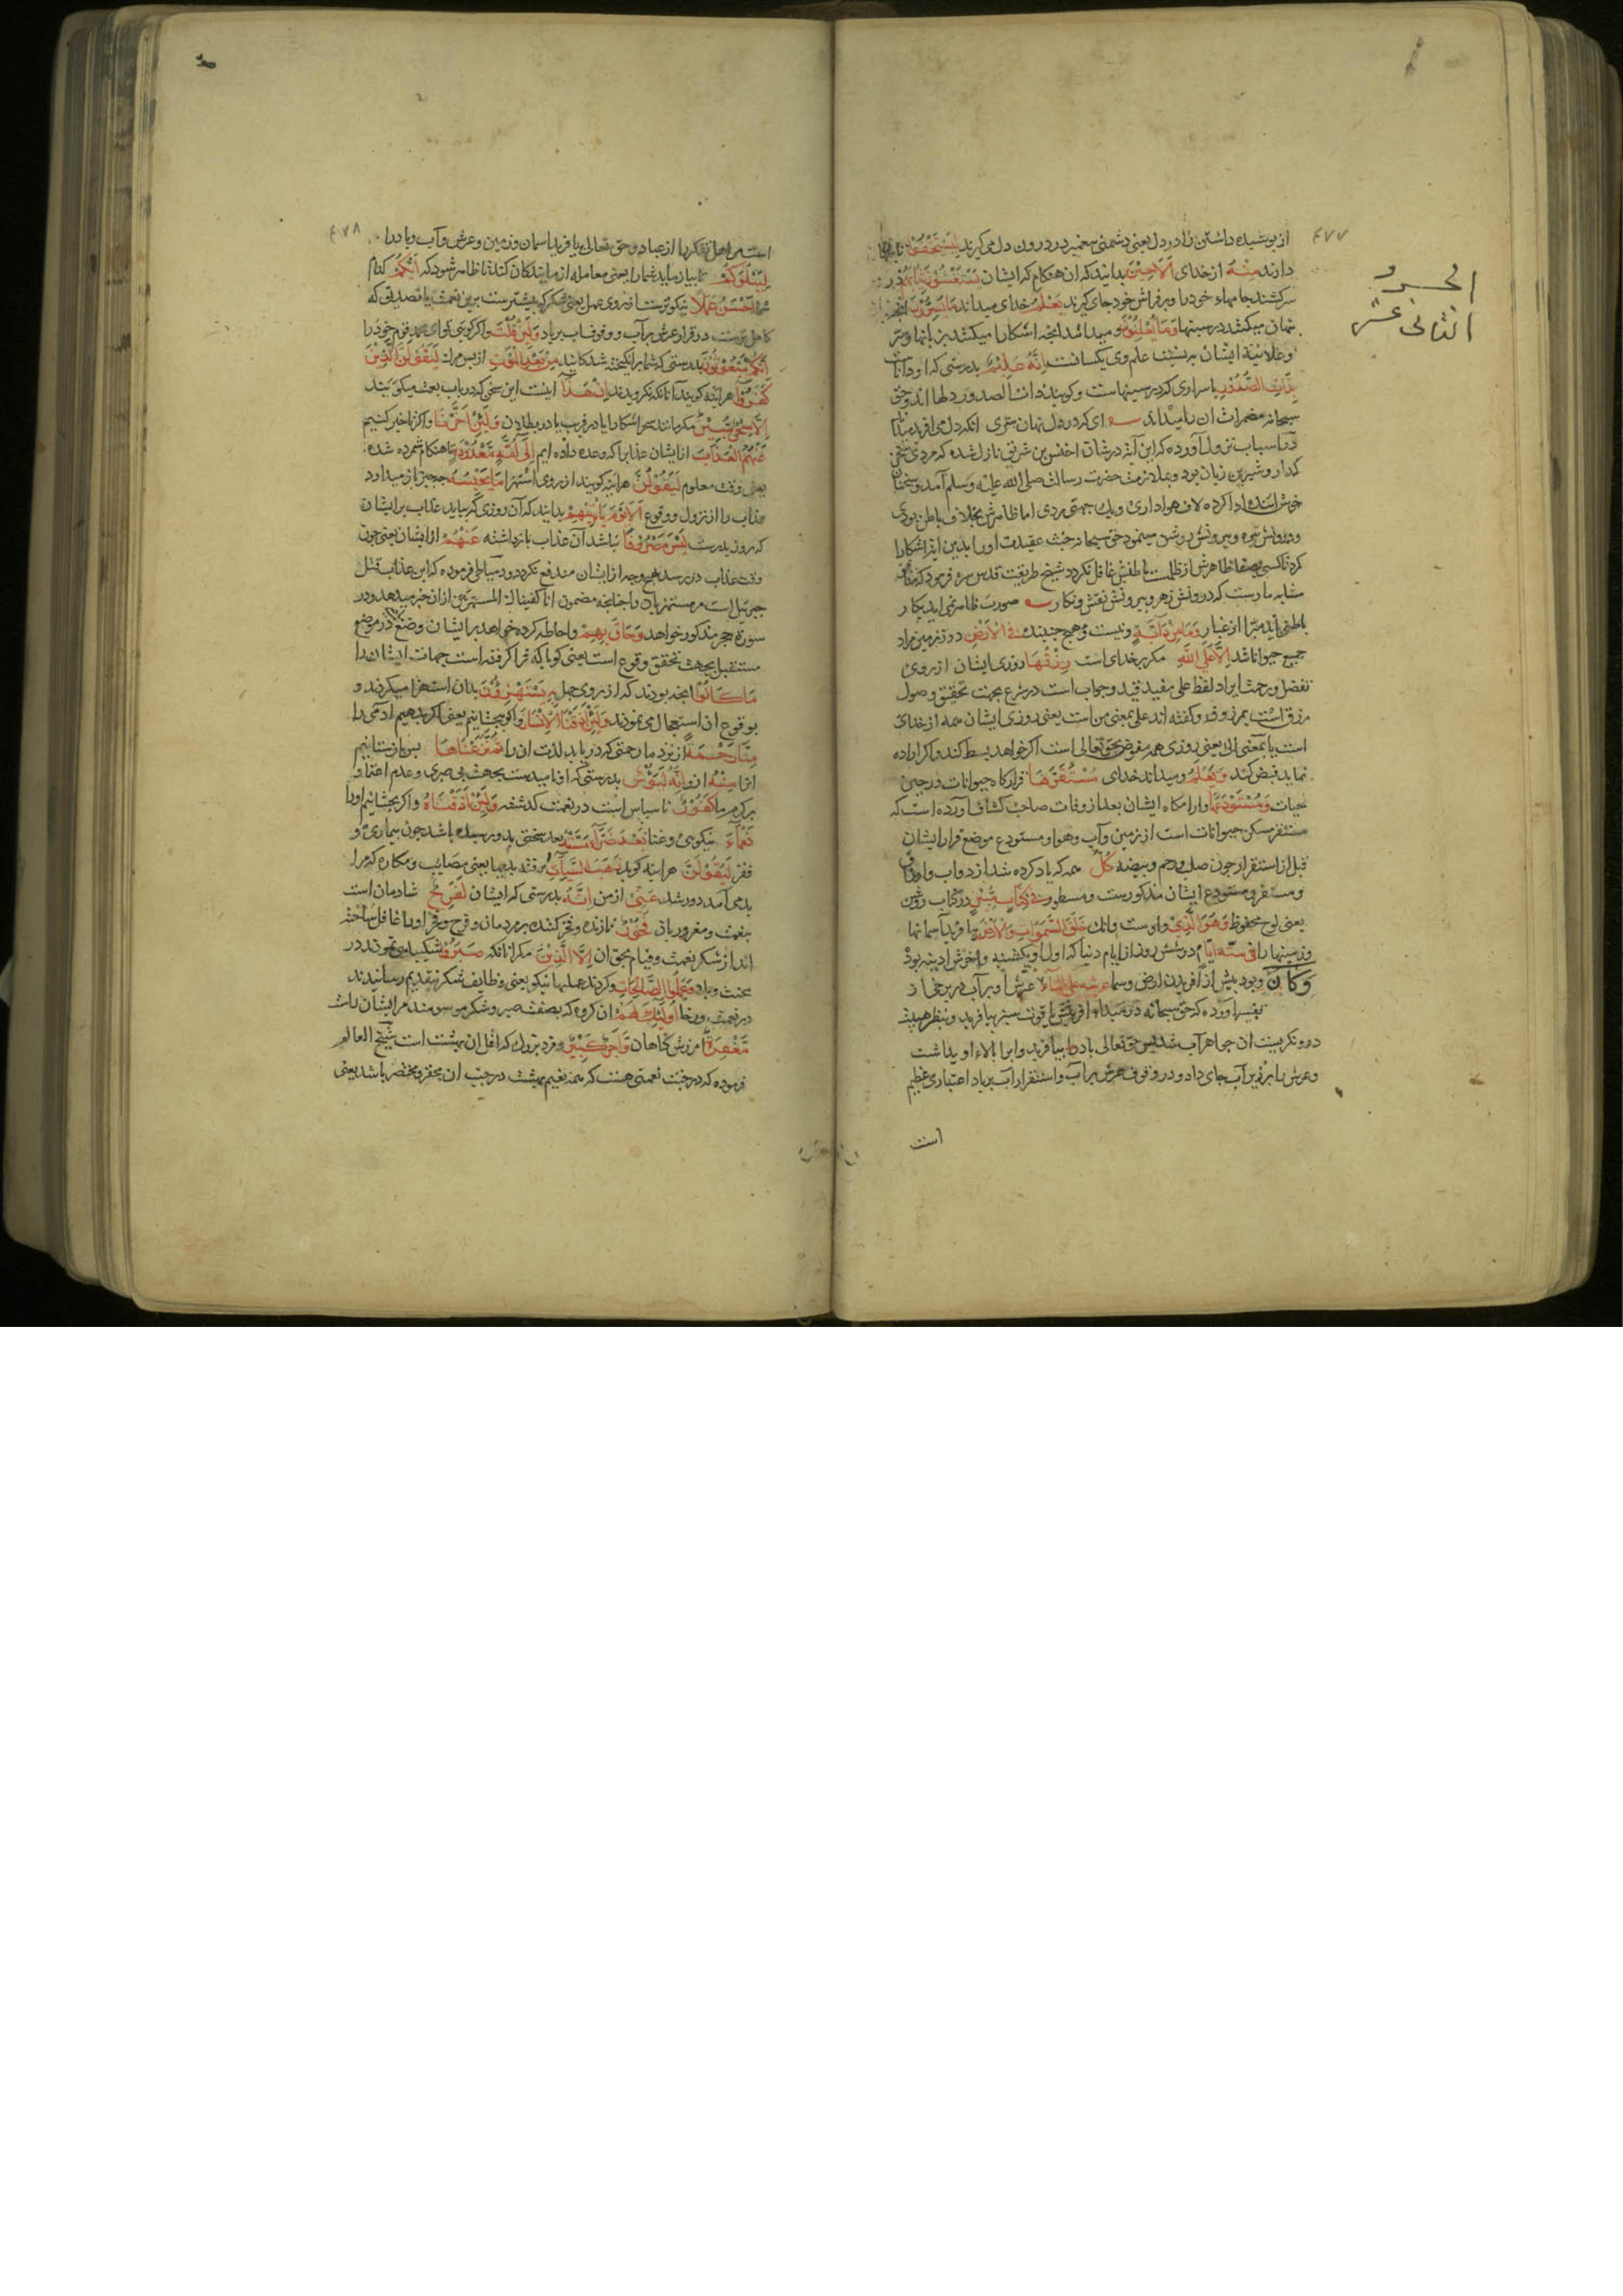 ۴۷۷
الجزو
الثانی عشر
از پوشیده داشتن راز در دل یعنی دشمنی پیغمبر در درون دل می گیرند لِيَسْتَخْفُوا تا پنهان
دارند مِنْهُ از خدای اَلَا حِينَ بدانید که آن هنکام که ایشان يَسْتَغْشُونَ ثِيَابَهُمْ در
سر کشند جامهاء خود را و بر فراش خود جای گیرند يَعْلَمُ خدای میداند مَا يُسِرُّونَ آنچه
پنهان میکنند در سینها وَمَا يُعْلِنُونَ و میداند آنچه آشکارا میکنند بزبانها و سر
و علانیة ایشان به نسبت علم وی یکسانست اِنَّهُ عَلِيمٌ بدرستی که او داناست
بِذَاتِ الصُّدُورِ باسراری که در سینهاست و کویند ذات الصدور دلها اند و حق
سبحانه مضمرات آن را میداند ای که در دل نهان سری انکه دل می آفرید میداند
در اسباب نزول آورده که این آیت در شان اخنس بن شریق نازل شده که مردی سخن
گذار و شیرین زبان بود و بملازمت حضرت رسالت صلی الله علیه وسلم آمدی و سخنان
خوش آینده ادا کرده لاف هواداری و یک جهتی زدی اما ظاهرش بخلاف باطن بودی
و درونش تیره و بیرونش روشن مینمود حق سبحانه خبث عقیدت او را بدین آیت آشکارا
کرد تا کسی بصفاء ظاهرش از ظلمت باطنش غافل نکردد شیخ طریقت قدس سره فرمود که منافق
مشابه مارست که درونش زهر و بیرونش نقش و نکار صورت ظاهری آید بکار
باطنی باید مبرا از غبار وَمَا مِنْ دَابَّةٍ و نیست هیچ جنبنده فِي الْاَرْضِ در زمین مراد
جمیع حیواناتند اِلَّا عَلَى اللهِ مکر بر خدای است رِزْقُهَا روزی ایشان از روی
تفضل و رحمت ایراد لفظ علی مفید قید وجوب است در شرع بجهت تحقیق وصول
رزق است بمرزوق و کفته اند علی بمعنی من است یعنی روزی ایشان همه از خدای
است یا بمعنی الی یعنی روزی همه مفوض بحق تعالی است اکر خواهد بسط کند و اکر اراده
نماید قبض کند وَيَعْلَمُ و میداند خدای مُسْتَقَرَّهَا قرارکاه حیوانات در حین
حیات وَمُسْتَوْدَعَهَا و آرامکاه ایشان بعد از وفات صاحب کشاف آورده است که
مستقر مسکن حیوانات است از زمین و آب و هوا و مستودع موضع قرار ایشان
قبل از استقرار چون صلب و رحم و بیضه كُلٌّ همه که یاد کرده شد از دواب و ارزاق
و مستقر و مستودع ایشان مذکورست و مسطور فِي كِتَابٍ مُبِينٍ در کتاب روشن
یعنی لوح محفوظ وَهُوَ الَّذِي و اوست آنک خَلَقَ السَّمٰوَاتِ وَالْاَرْضَ بیافرید آسمانها
و زمینها را فِي سِتَّةِ اَيَّامٍ در شش روز از ایام دنیا که اول او یکشنبه و آخرش آدینه بود
وَكَانَ و بود پیش از آفریدن ارض و سما عَرْشُهُ عَلَى الْمَاءِ عرش او بر آب در برخی از
تفسیر آورده که حق سبحانه در مبداء آفرینش یاقوت سبز بیافرید و بنظر هیبت
درو نکریست آن جوهر آب شد پس حق تعالی باد را بیافرید و آب را بالاء او بداشت
و عرش را بر زبر آب جای داد و در وقوف عرش بر آب و استقرار آب بر باد اعتباری عظیم
است
۴۷۸
است مر اهل تفکر را از عباد و حق تعالی بیافرید آسمان و زمین و عرش و آب و باد را
لِيَبْلُوَكُمْ تا بیازماید شما را یعنی معامله آزمایندکان کند تا ظاهر شود که اَيُّكُمْ کدام
شما اَحْسَنُ عَمَلًا نیکوترست از روی عمل یعنی شکر که بیشترست برین نعمت یا تصدیق که
کاملترست در قرار عرش بر آب و وقوف آب بر باد وَلَئِنْ قُلْتَ و اکر کویی تو ای محمد قوم خود را
اِنَّكُمْ مَبْعُوثُونَ بدرستی که شما برانکیخته شدکانید مِنْ بَعْدِ الْمَوْتِ از پس مرک لَيَقُولَنَّ الَّذِينَ
كَفَرُوا هرآینه کویند آنانکه نکرویدند اِنْ هٰذَا اینست این سخن که در باب بعث میکویند
اِلَّا سِحْرٌ مُبِينٌ مکر مانند سحر آشکارا یا در فریب یا در بطلان وَلَئِنْ اَخَّرْنَا و اکر تاخیر کنیم
عَنْهُمُ الْعَذَابَ از ایشان عذابرا که وعده داده ایم اِلٰى اُمَّةٍ مَعْدُودَةٍ تا هنکام شمرده شده
یعنی وقت معلوم لَيَقُولُنَّ هرآینه کویند از روی استهزا مَا يَحْبِسُهُ چه چیز باز میدارد
عذاب را از نزول و وقوع اَلَا يَوْمَ يَأْتِيهِمْ بدانید که آن روزی که بیاید عذاب بر ایشان
که روز بدرست لَيْسَ مَصْرُوفًا نباشد آن عذاب بازداشته عَنْهُمْ از ایشان یعنی چون
وقت عذاب در رسد هیچ وجه از ایشان مندفع نکردد و دمیاطی فرموده که این عذاب قتل
جبرئیل است مر مستهزیان را چنانچه مضمون انا کفیناک المستهزئین از آن خبر میدهد و در
سورة حجر مذکور خواهد وَحَاقَ بِهِمْ و احاطه کرده خواهد بر ایشان وضع ماضی در موضع
مستقبل بجهت تحقق وقوع است یعنی کویا که فرا کرفته است جهات ایشان را
مَا كَانُوا آنچه بودند که از روی جهل بِهِ يَسْتَهْزِؤُنَ بدان استهزا میکردند و
بوقوع آن استعجال می نمودند وَلَئِنْ اَذَقْنَا الْاِنْسَانَ و اکر بچشانیم یعنی اکر بدهیم آدمی را
مِنَّا رَحْمَةً از نزد ما رحمتی که دریابد لذت آن را ثُمَّ نَزَعْنَاهَا پس باز ستانیم
آنرا مِنْهُ ازو اِنَّهُ لَيَؤُسٌ بدرستی که او ناامیدست بجهت بی صبری و عدم اعتماد
بر کرم ما كَفُورٌ ناسپاس است در نعمت کذشته وَلَئِنْ اَذَقْنَاهُ و اکر بچشانیم او را
نَعْمَاءَ نیکویی و غنا بَعْدَ ضَرَّاءَ مَسَّتْهُ بعد سختی که بدو رسیده باشد چون بیماری و
فقر لَيَقُولَنَّ هرآینه کوید ذَهَبَ السَّيِّاٰتُ برفت بدیها یعنی مصایب و مکاره که مرا
بد می آمد دور شد عَنِّي از من اِنَّهُ بدرستی که ایشان لَفَرِحٌ شادمان است
بنعمت و مغرور بآن فَخُورٌ نازنده و فخر کننده بر مردمان و فرح و فخر او را غافل ساخته
اند از شکر نعمت و قیام بحق آن اِلَّا الَّذِينَ مکر آنانکه صَبَرُوا شکیبایی نمودند در
محنت و بلا وَعَمِلُوا الصَّالِحَاتِ و کردند عملهاء نیکو یعنی وظایف شکر بتقدیم رسانیدند
در نعمت و رخا اُولٰئِكَ لَهُمْ آن کروه که بصفت صبر و شکر موسومند مر ایشان راست
مَغْفِرَةٌ آمرزش کناهان وَاَجْرٌ كَبِيرٌ و مزد بزرک که اقل آن بهشت است شیخ العالم
فرموده که در جنت نعمتی هست که همه نعیم بهشت در جنب آن محقر و مختصر باشد یعنی